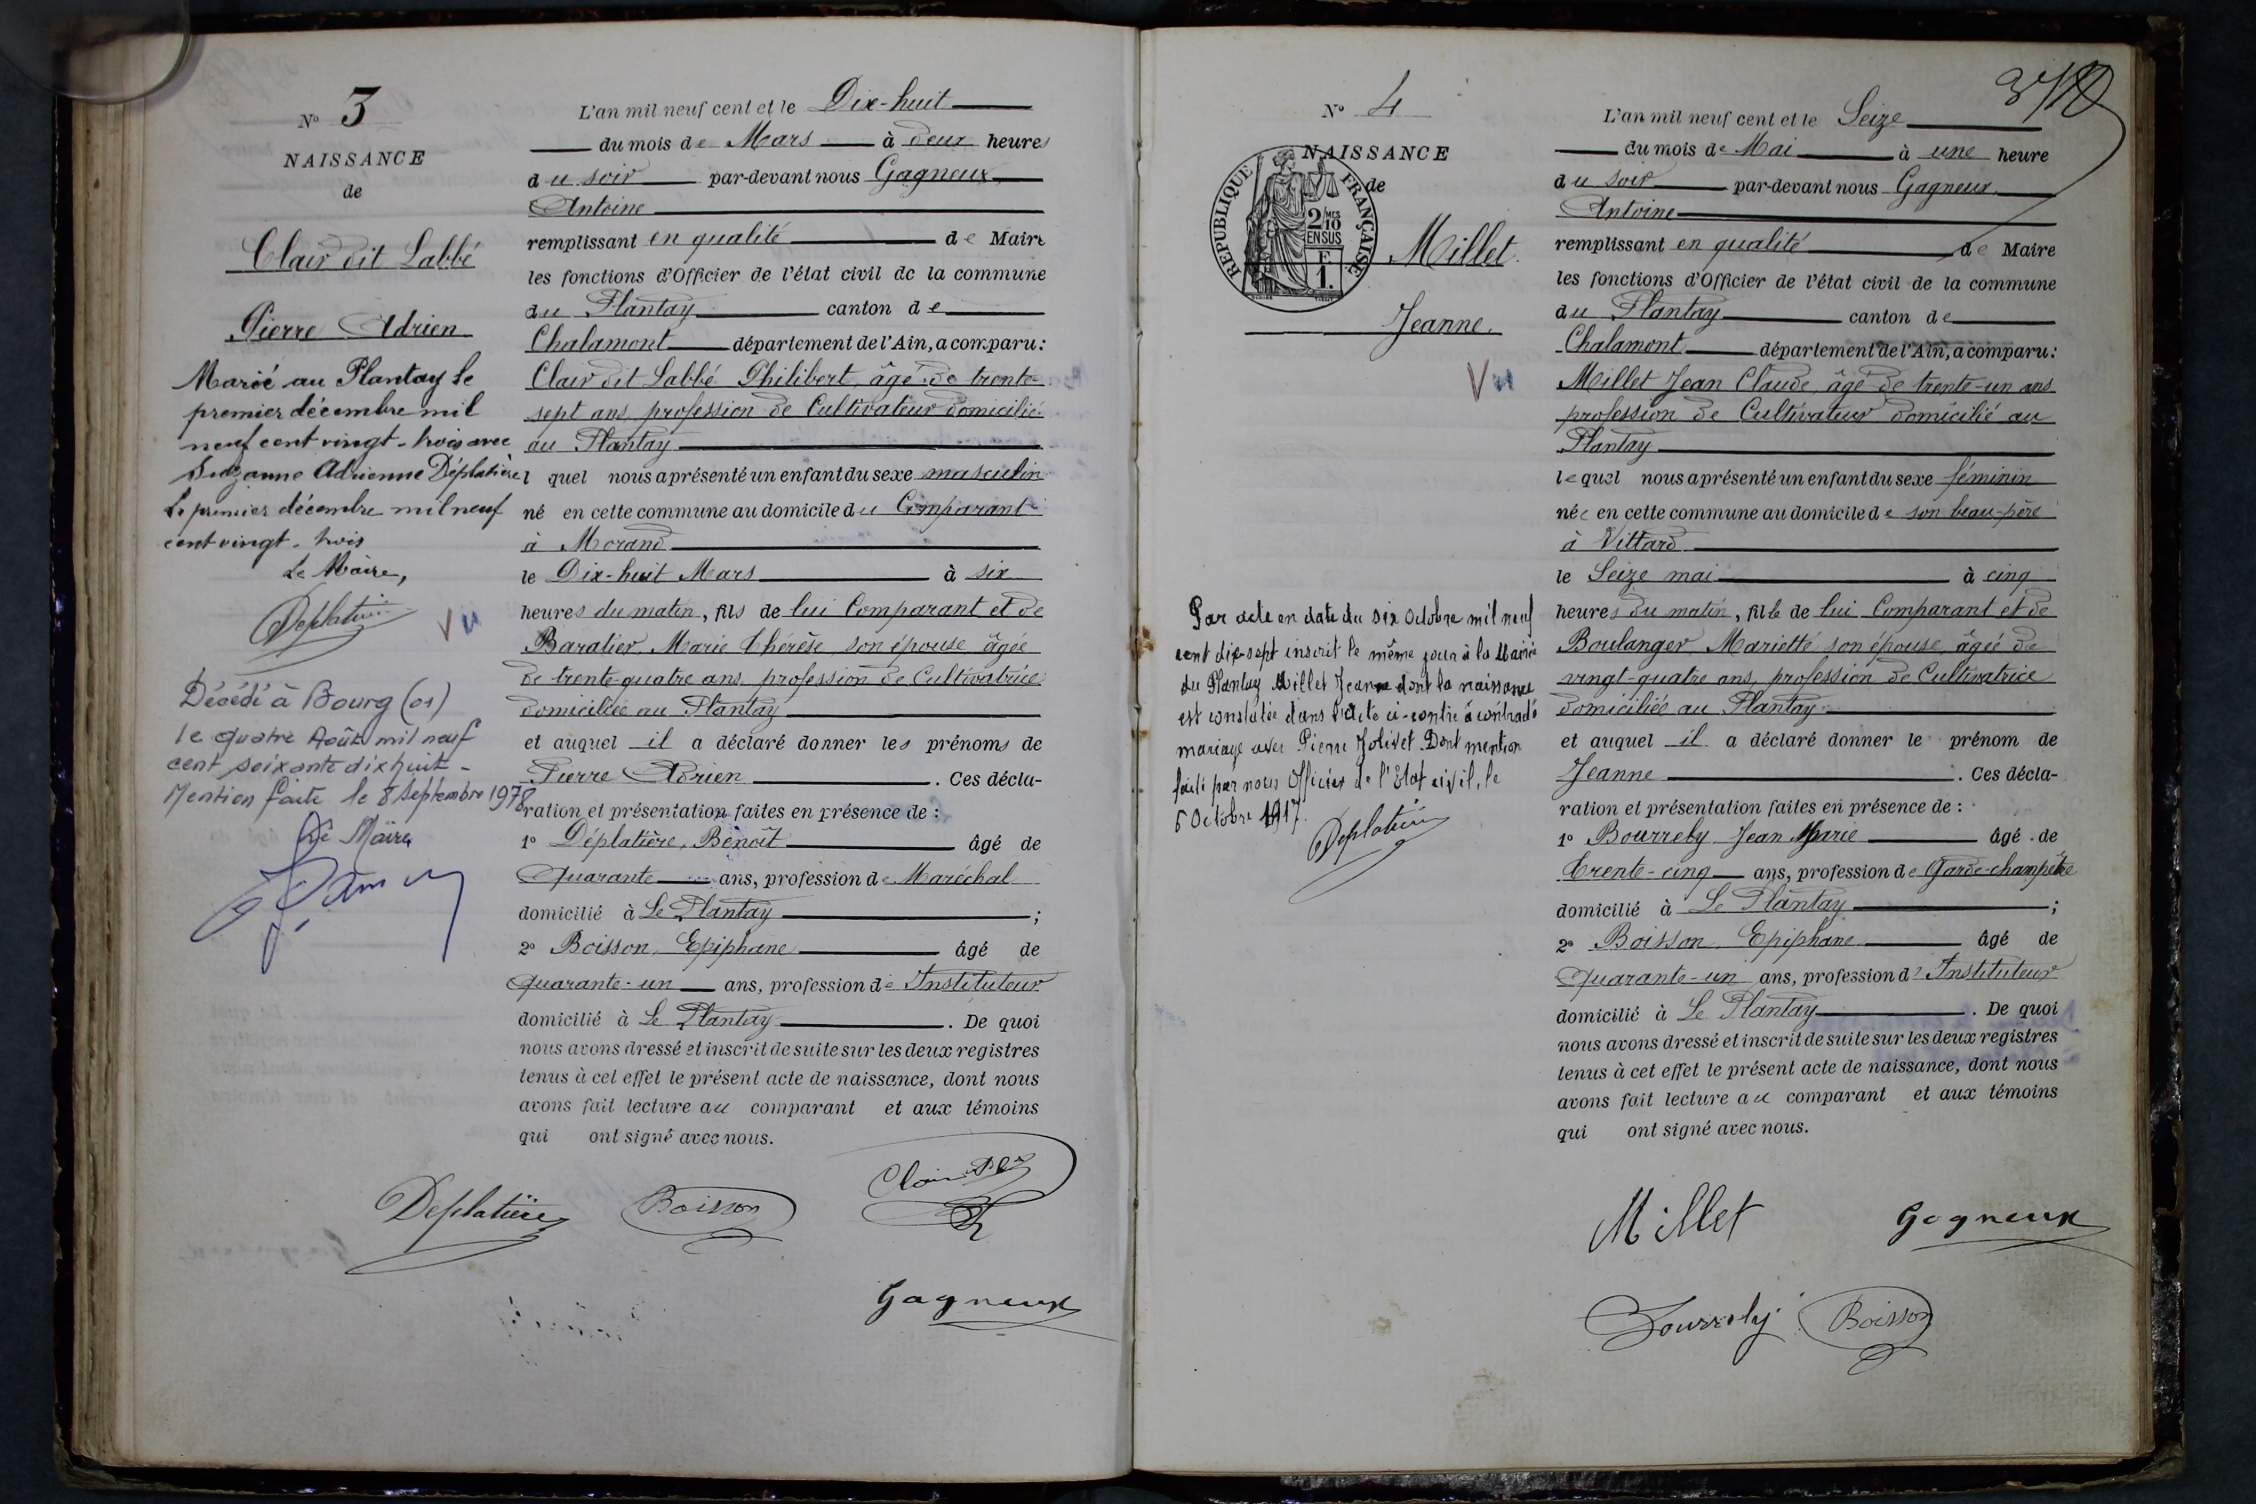 N° 3
NAISSANCE
de
Clair dit Labbé
Pierre Adrien
Marié au Plantay le
premier décembre mil
neuf cent vingt-trois avec
Suzanne Adrienne Déplatière
Le premier décembre mil neuf
cent vingt-trois
Le Maire,
Deplatière
Vu
Décédé à Bourg (01)
le quatre Août mil neuf
cent soixante dix huit -
Mention faite le 8 septembre 1978
Le Maire
L'an mil neuf cent et le Dix-huit
du mois de Mars à deux heures
du soir par-devant nous Gagneux
Antoine
remplissant en qualité de Maire
les fonctions d'Officier de l'état civil de la commune
du Plantay canton de
Chalamont département de l'Ain, a comparu :
Clair dit Labbé Philibert, âgé de trente-
sept ans, profession de Cultivateur domicilié
au Plantay
l quel nous a présenté un enfant du sexe masculin
né en cette commune au domicile du Comparant
à Morand
le Dix-huit Mars à six
heures du matin, fils de lui Comparant et de
Baratier, Marie Thérèse, son épouse âgée
de trente-quatre ans, profession de Cultivatrice
domiciliée au Plantay
et auquel il a déclaré donner les prénoms de
Pierre Adrien . Ces décla-
ration et présentation faites en présence de :
1° Déplatière, Benoît âgé de
Quarante ans, profession de Maréchal
domicilié à Le Plantay ;
2° Boisson, Epiphane âgé de
quarante-un ans, profession de Instituteur
domicilié à Le Plantay . De quoi
nous avons dressé et inscrit de suite sur les deux registres
tenus à cet effet le présent acte de naissance, dont nous
avons fait lecture au comparant et aux témoins
qui ont signé avec nous.
Deplatière Boisson Clair
Gagneux
N° 4
NAISSANCE
de
RÉPUBLIQUE FRANÇAISE
2/10 MES
EN SUS
F
1.
Millet
Jeanne.
Vu
Par acte en date du six octobre mil neuf
cent dix-sept inscrit le même jour à la Mairie
du Plantay Millet Jeanne dont la naissance
est constatée dans l'acte ci-contre a contracté
mariage avec Pierre Jolivet. Dont mention
faite par nous Officier de l'Etat civil, le
6 Octobre 1917.
Deplatière
L'an mil neuf cent et le Seize
du mois de Mai à une heure
du soir par-devant nous Gagneux
Antoine
remplissant en qualité de Maire
les fonctions d'Officier de l'état civil de la commune
du Plantay canton de
Chalamont département de l'Ain, a comparu :
Millet Jean Claude, âgé de trente-un ans
profession de Cultivateur domicilié au
Plantay
lequel nous a présenté un enfant du sexe féminin
née en cette commune au domicile de son beau-père
à Vittard
le Seize mai à cinq
heures du matin, fille de lui Comparant et de
Boulanger Mariette son épouse, âgée de
vingt-quatre ans, profession de Cultivatrice
domiciliée au Plantay
et auquel il a déclaré donner le prénom de
Jeanne . Ces décla-
ration et présentation faites en présence de :
1° Bourreby Jean Marie âgé de
Trente-cinq ans, profession de Garde-champêtre
domicilié à Le Plantay ;
2° Boisson Epiphane âgé de
Quarante-un ans, profession d' Instituteur
domicilié à Le Plantay . De quoi
nous avons dressé et inscrit de suite sur les deux registres
tenus à cet effet le présent acte de naissance, dont nous
avons fait lecture au comparant et aux témoins
qui ont signé avec nous.
Millet Gagneux
Bourreby Boisson